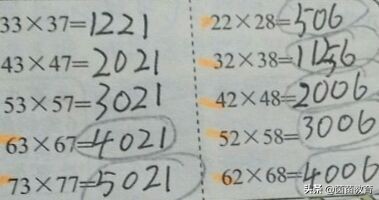 33×37=1221
43×47=2021
53×57=3021
63×67=4021
73×77=5021
22×28=506
32×38=1156
42×48=2006
52×58=3006
62×68=4006
头条@国苗教育